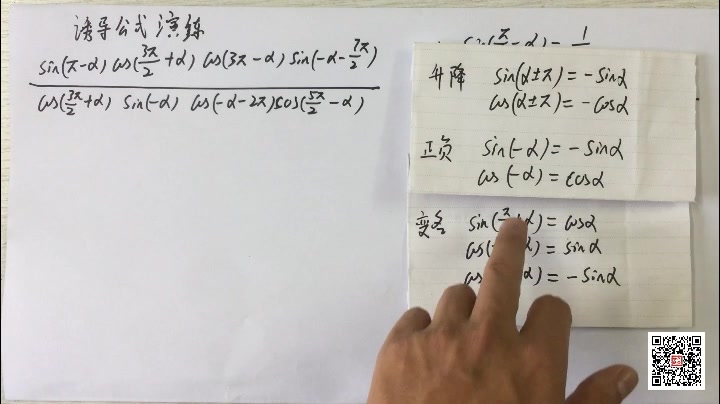 诱导公式演练
sin(π-α) cos(3π/2+α) cos(3π-α) sin(-α-7π/2)
cos(3π/2+α) sin(-α) cos(-α-2π)cos(5π/2-α)
cos(π/2-α)=1
升降 sin(α±π)=-sinα
cos(α±π)=-cosα
正负 sin(-α)=-sinα
cos(-α)=cosα
变名 sin(π/2+α)=cosα
cos( α)=sinα
cos( α)=-sinα